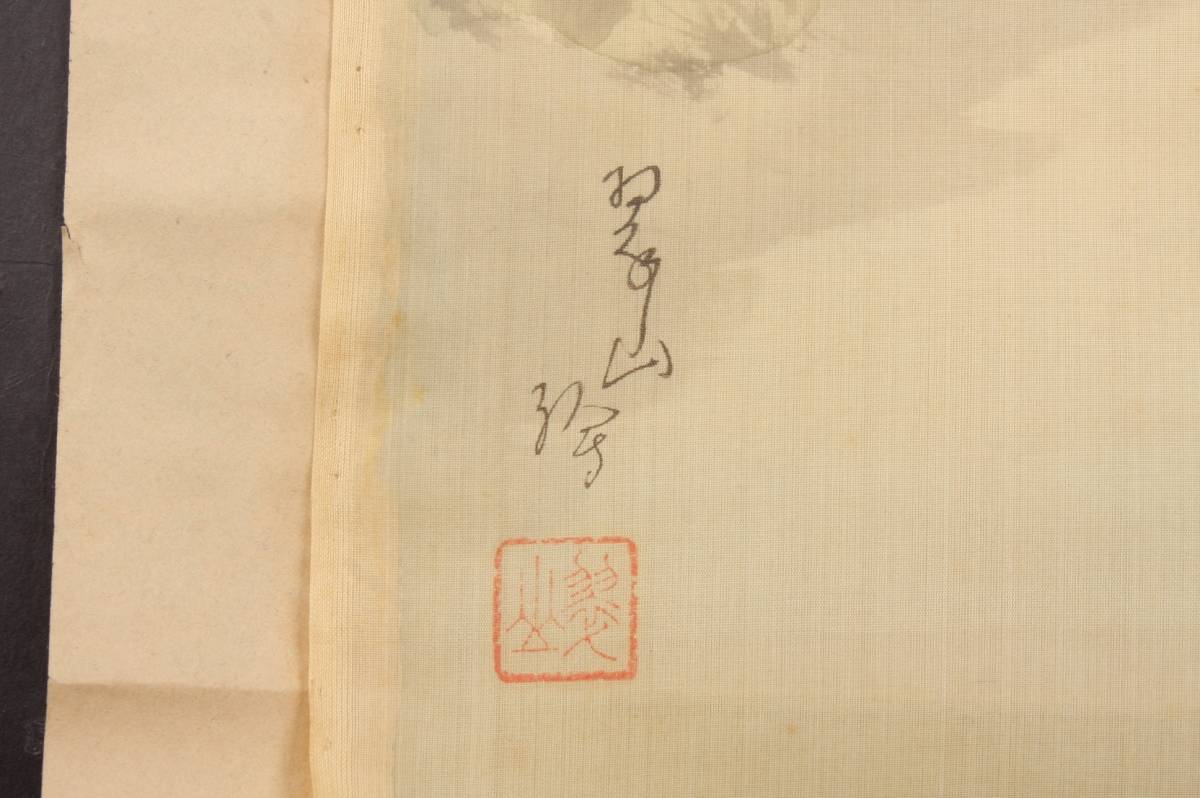 翠山
翠山